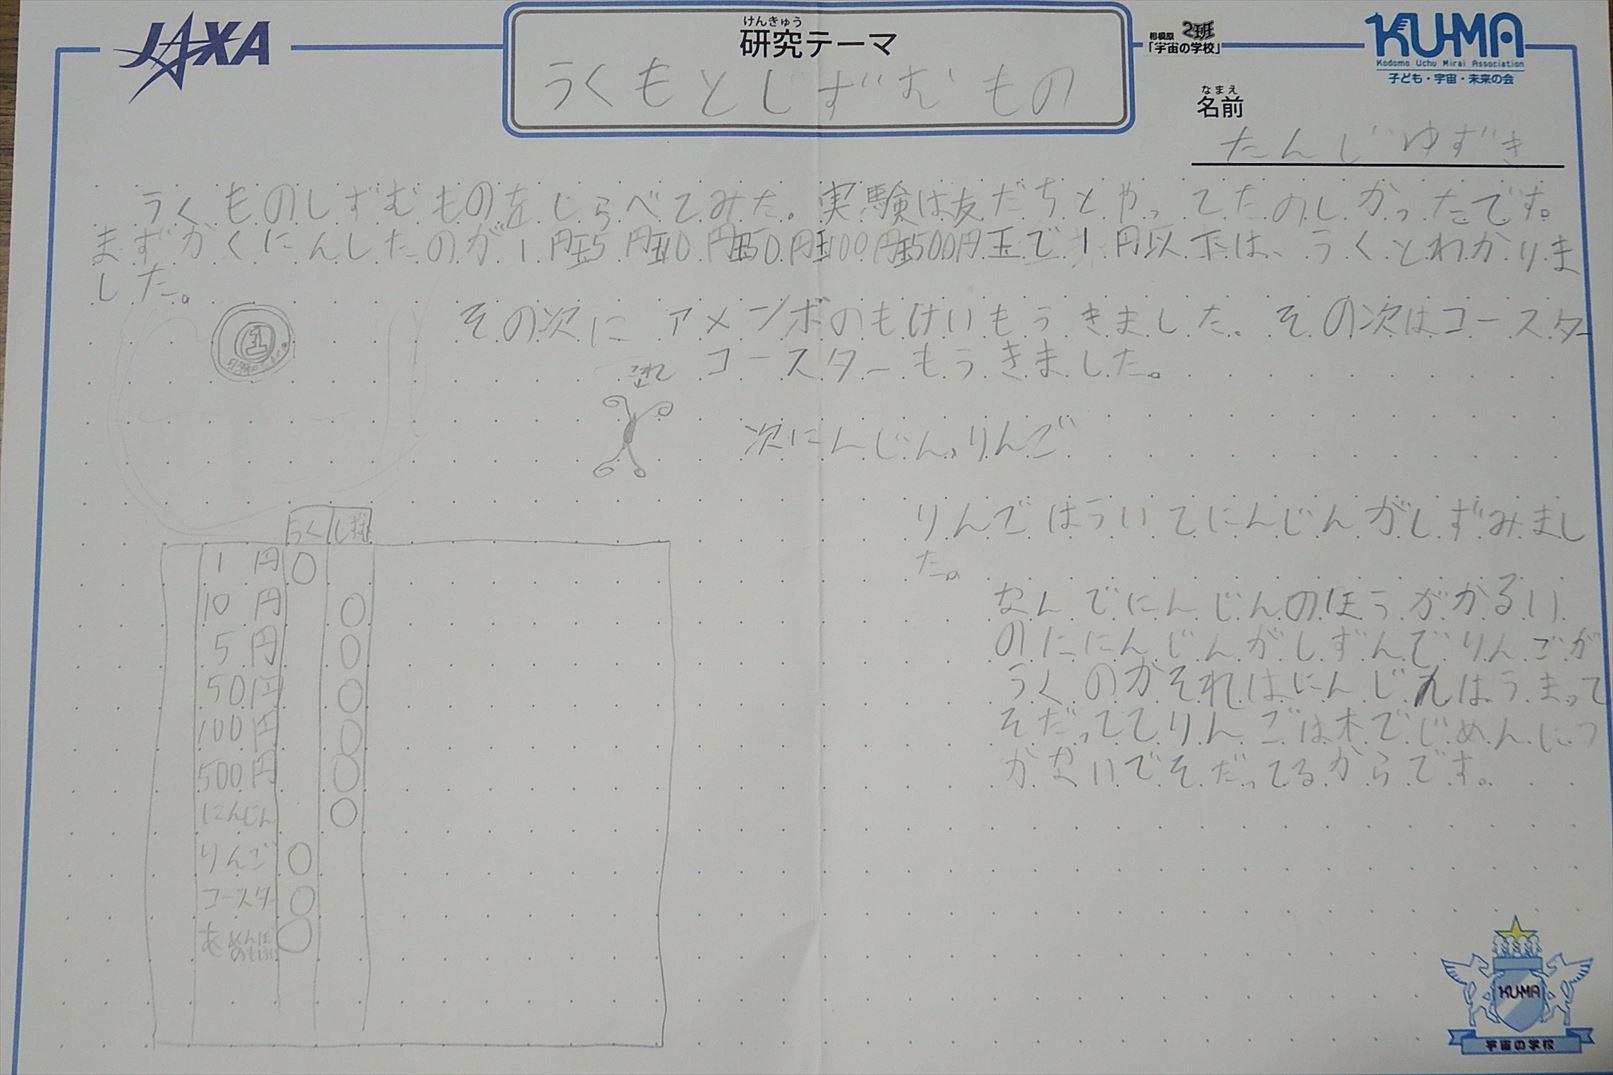 JAXA
けんきゅう
研究テーマ
うくもとじずむもの
相模原 2班
「宇宙の学校」
KU-MA
Kodomo Uchu Mirai Association
子ども・宇宙・未来の会
なまえ
名前
たんじゆずき
うくものしずむものをしらべてみた。実験は友だちとやってたのしかったです。
まずかくにんしたのが1円玉5円玉10円玉50円玉100円玉500円玉で1円以下は、うくとわかりま
した。
その次にアメンボのもけいもうきました。その次はコースター
コースターもうきました。
これ
次にんじん、りんご
りんごはういてにんじんがしずみまし
た。
なんでにんじんのほうがかるい
のににんじんがしずんでりんごが
うくのかそれはにんじんはうまって
そだっててりんごは木でじめんにつ
かないでそだってるからです。
うく
1円 ○
10円 ○
5円 ○
50円 ○
100円 ○
500円 ○
にんじん ○
りんご ○
コースター ○
あめんぼ ○
KU-MA
宇宙の学校